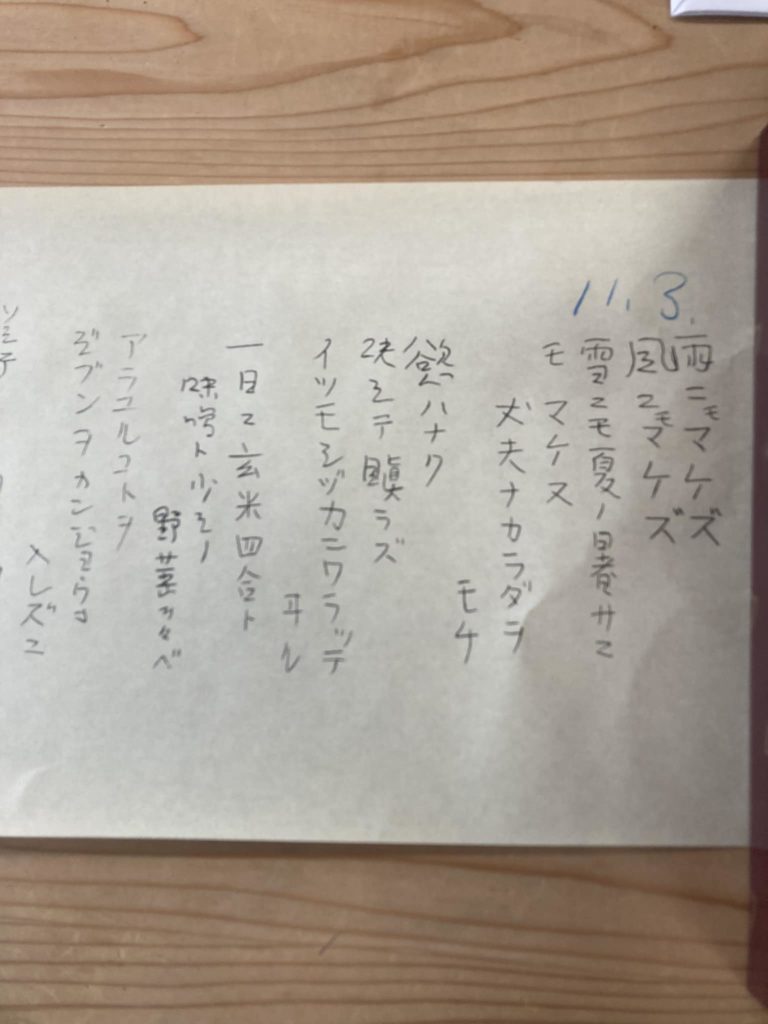 11.3.
雨ニモマケズ
風ニモマケズ
雪ニモ夏ノ暑サニ
モ マケヌ
丈夫ナカラダヲ
モチ
慾ハナク
決シテ瞋ラズ
イツモシヅカニワラッテ
ヰル
一日ニ玄米四合ト
味噌ト少シノ
野菜ヲタベ
アラユルコトヲ
ジブンヲカンジョウニ
入レズニ